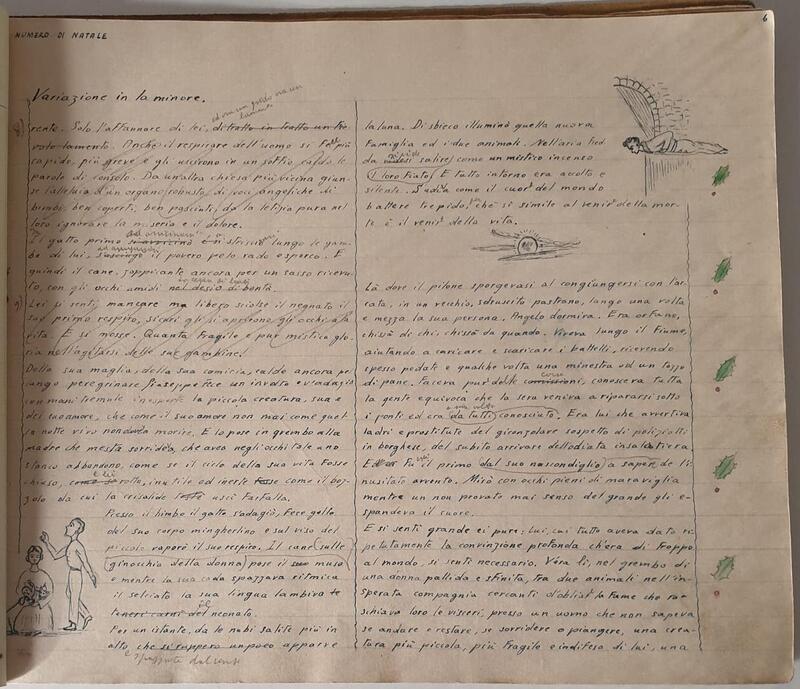 NUMERO DI NATALE
6
Variazione in la minore.
ed era un grido ora un
lamento
8)
rento. Solo l'affannare di lei, di tratto in tratto un fre
volo lamento. Anche il respirare dell'uomo si fa più
rapido, più greve e gli uscirono in un soffio caldo le
parole di consolo. Da un'altra chiesa più vicina giun-
se l'alleluia d'un organo robusto, di voci angeliche di
bimbi, ben coperti, ben pasciuti, da la letizia pura nel
loro ignorare la miseria e il dolore.
Il gatto primo si avvicinò e si strisciò lungo le gam
be di lui, il povero pelo rado e sporco. E
quindi il cane, zoppicante ancora per un sasso ricevu
to, con gli occhi umidi nel desio di bontà.
9)
Lei si sentì mancare ma libero sciolse il neonato il
suo primo respiro, sicuri gli si aprirono gli occhi a la
vita. E si mosse. Quanta fragile e pur mistica glo
ria nell'agitarsi delle sue gambine!
Della sua maglia, della sua camicia, calde ancora pel
lungo peregrinare, Giuseppe fece un involto e v'adagiò
con mani tremule inesperte la piccola creatura, sua e
del suo amore, che come il suo amore non mai come quel
la notte vivo non deve morire. E lo pose in grembo alla
madre che mesta sorridea, che avea negli occhi tale uno
stanco abbandono, come se il ciclo della sua vita fosse
chiuso, rotto, inutile ed inerte come il boz
zolo da cui la crisalide uscì farfalla.
Presso il bimbo il gatto s'adagiò, fece gello
del suo corpo mingherlino e sul viso del
piccolo vaporò il suo respiro. Il cane (sulle
ginocchia della donna) pose il suo muso
e mentre la sua coda spazzava ritmica
il selciato la sua lingua lambiva le
teneri carni del neonato.
Per un istante, da le nubi salite più in
alto che si ruppero un poco apparve
e spazzate dal vento
la luna. Di sbieco illuminò quella nuova
famiglia ed i due animali. Nell'aria fred
da salire, come un mistico incenso
il loro fiato. E tutto intorno era accolto e
silente. S'udia come il cuor del mondo
battere trepido, chè sì simile al venir della mor
te è il venir della vita.
Là dove il pilone sporgevasi al congiungersi con l'ar
cata, in un vecchio, sdrucito pastrano, lungo una volta
e mezza la sua persona, Angelo dormiva. Era orfano,
chissà di chi, chissà da quando. Viveva lungo il fiume,
aiutando a caricare e scaricare i battelli, ricevendo
spesso pedate e qualche volta una minestra od un tozzo
di pane. Faceva pur delle commissioni, conosceva tutta
corse
la gente equivoca che la sera veniva a ripararsi sotto
i ponti ed era (da tutti) conosciuto. Era lui che avvertiva
a sua volta
ladri e prostitute del gironzolare sospetto di poliziotti
in borghese, del subito arrivare dell'odiata insalatiera
Ed fu il primo (dal suo nascondiglio) a sapere de l'i
nusitato avvento. Mirò con occhi pieni di maraviglia
mentre un non provato mai senso del grande gli e-
spandeva il cuore.
E si sentì grande ei pure; lui, cui tutto aveva dato ri
petutamente la convinzione profonda ch'era di troppo
al mondo, si sentì necessario. V'era lì, nel grembo di
una donna pallida e sfinita, tra due animali nell'in-
sperata compagnia cercanti d'obliar la fame che ra-
schiava loro le visceri, presso un uomo che non sapeva
se andare o restare, se sorridere o piangere, una crea-
tura più piccola, più fragile e indifesa di lui, una